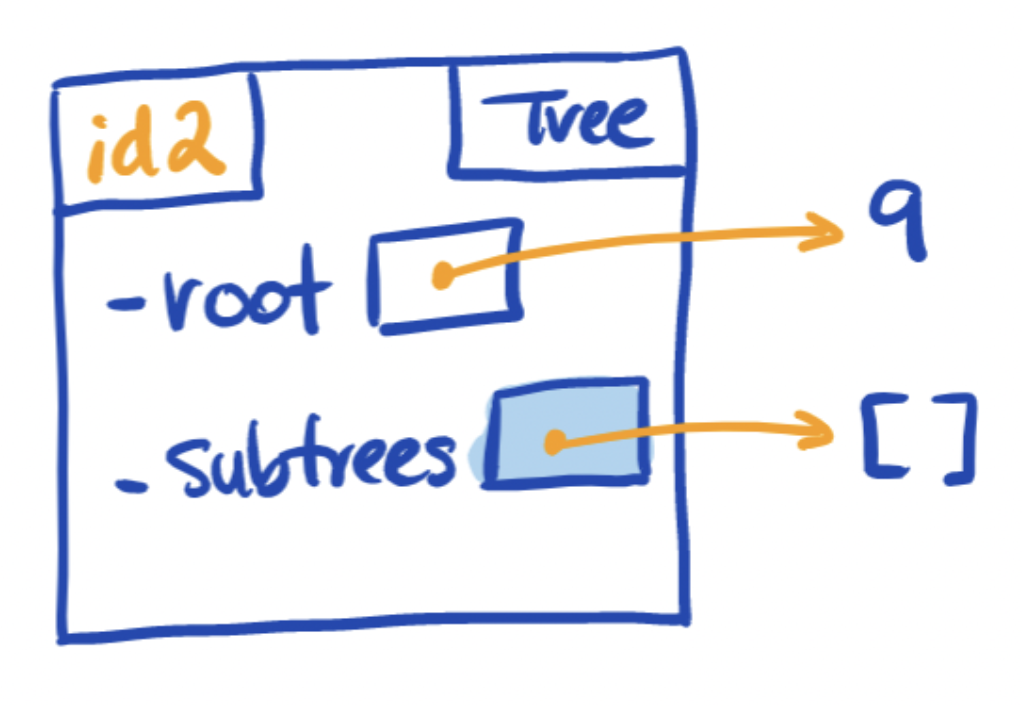 id2 Tree
-root 9
-subtrees []